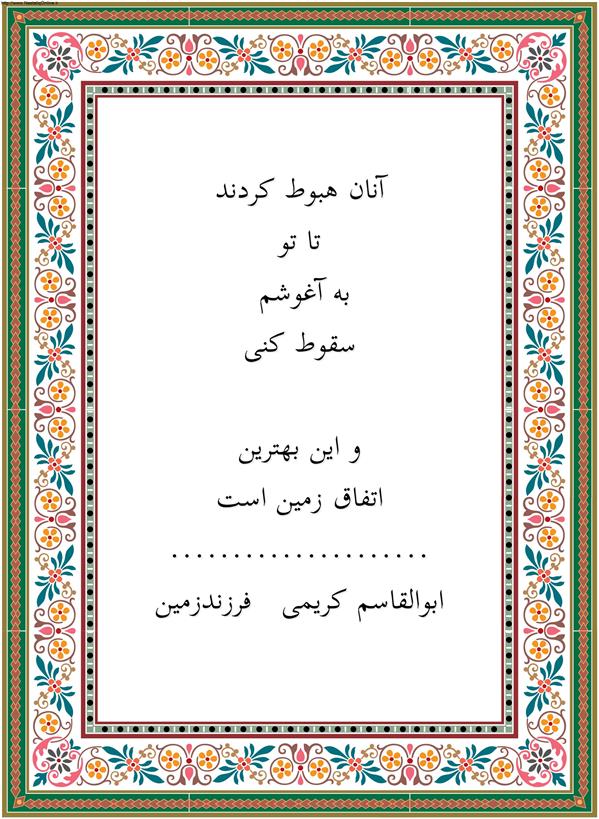 http://www.NastaliqOnline.ir
آنان هبوط کردند
تا تو
به آغوشم
سقوط کنی
و این بهترین
اتفاق زمین است
.....................
ابوالقاسم کریمی فرزندزمین